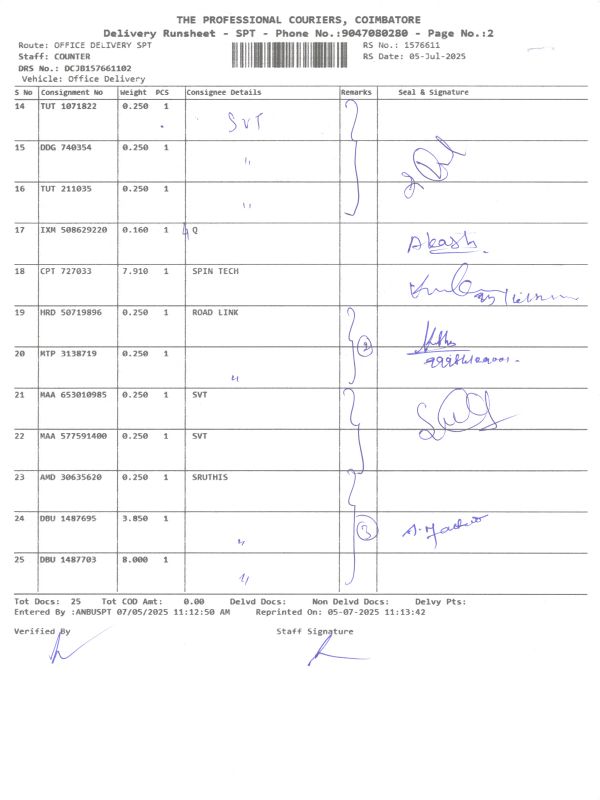 THE PROFESSIONAL COURIERS, COIMBATORE
Delivery Runsheet - SPT - Phone No.:9047080280 - Page No.:2
Route: OFFICE DELIVERY SPT RS No.: 1576611
Staff: COUNTER RS Date: 05-Jul-2025
DRS No.: DCJB157661102
Vehicle: Office Delivery
S No Consignment No Weight PCS Consignee Details Remarks Seal & Signature
14 TUT 1071822 0.250 1 SVT
15 DDG 740354 0.250 1 "
16 TUT 211035 0.250 1 "
17 IXM 508629220 0.160 1 Q Akash
18 CPT 727033 7.910 1 SPIN TECH
19 HRD 50719896 0.250 1 ROAD LINK
20 MTP 3138719 0.250 1 " 2
21 MAA 653010985 0.250 1 SVT
22 MAA 577591400 0.250 1 SVT
23 AMD 30635620 0.250 1 SRUTHIS
24 DBU 1487695 3.850 1 " 3
25 DBU 1487703 8.000 1 "
Tot Docs: 25 Tot COD Amt: 0.00 Delvd Docs: Non Delvd Docs: Delvy Pts:
Entered By :ANBUSPT 07/05/2025 11:12:50 AM Reprinted On: 05-07-2025 11:13:42
Verified By Staff Signature